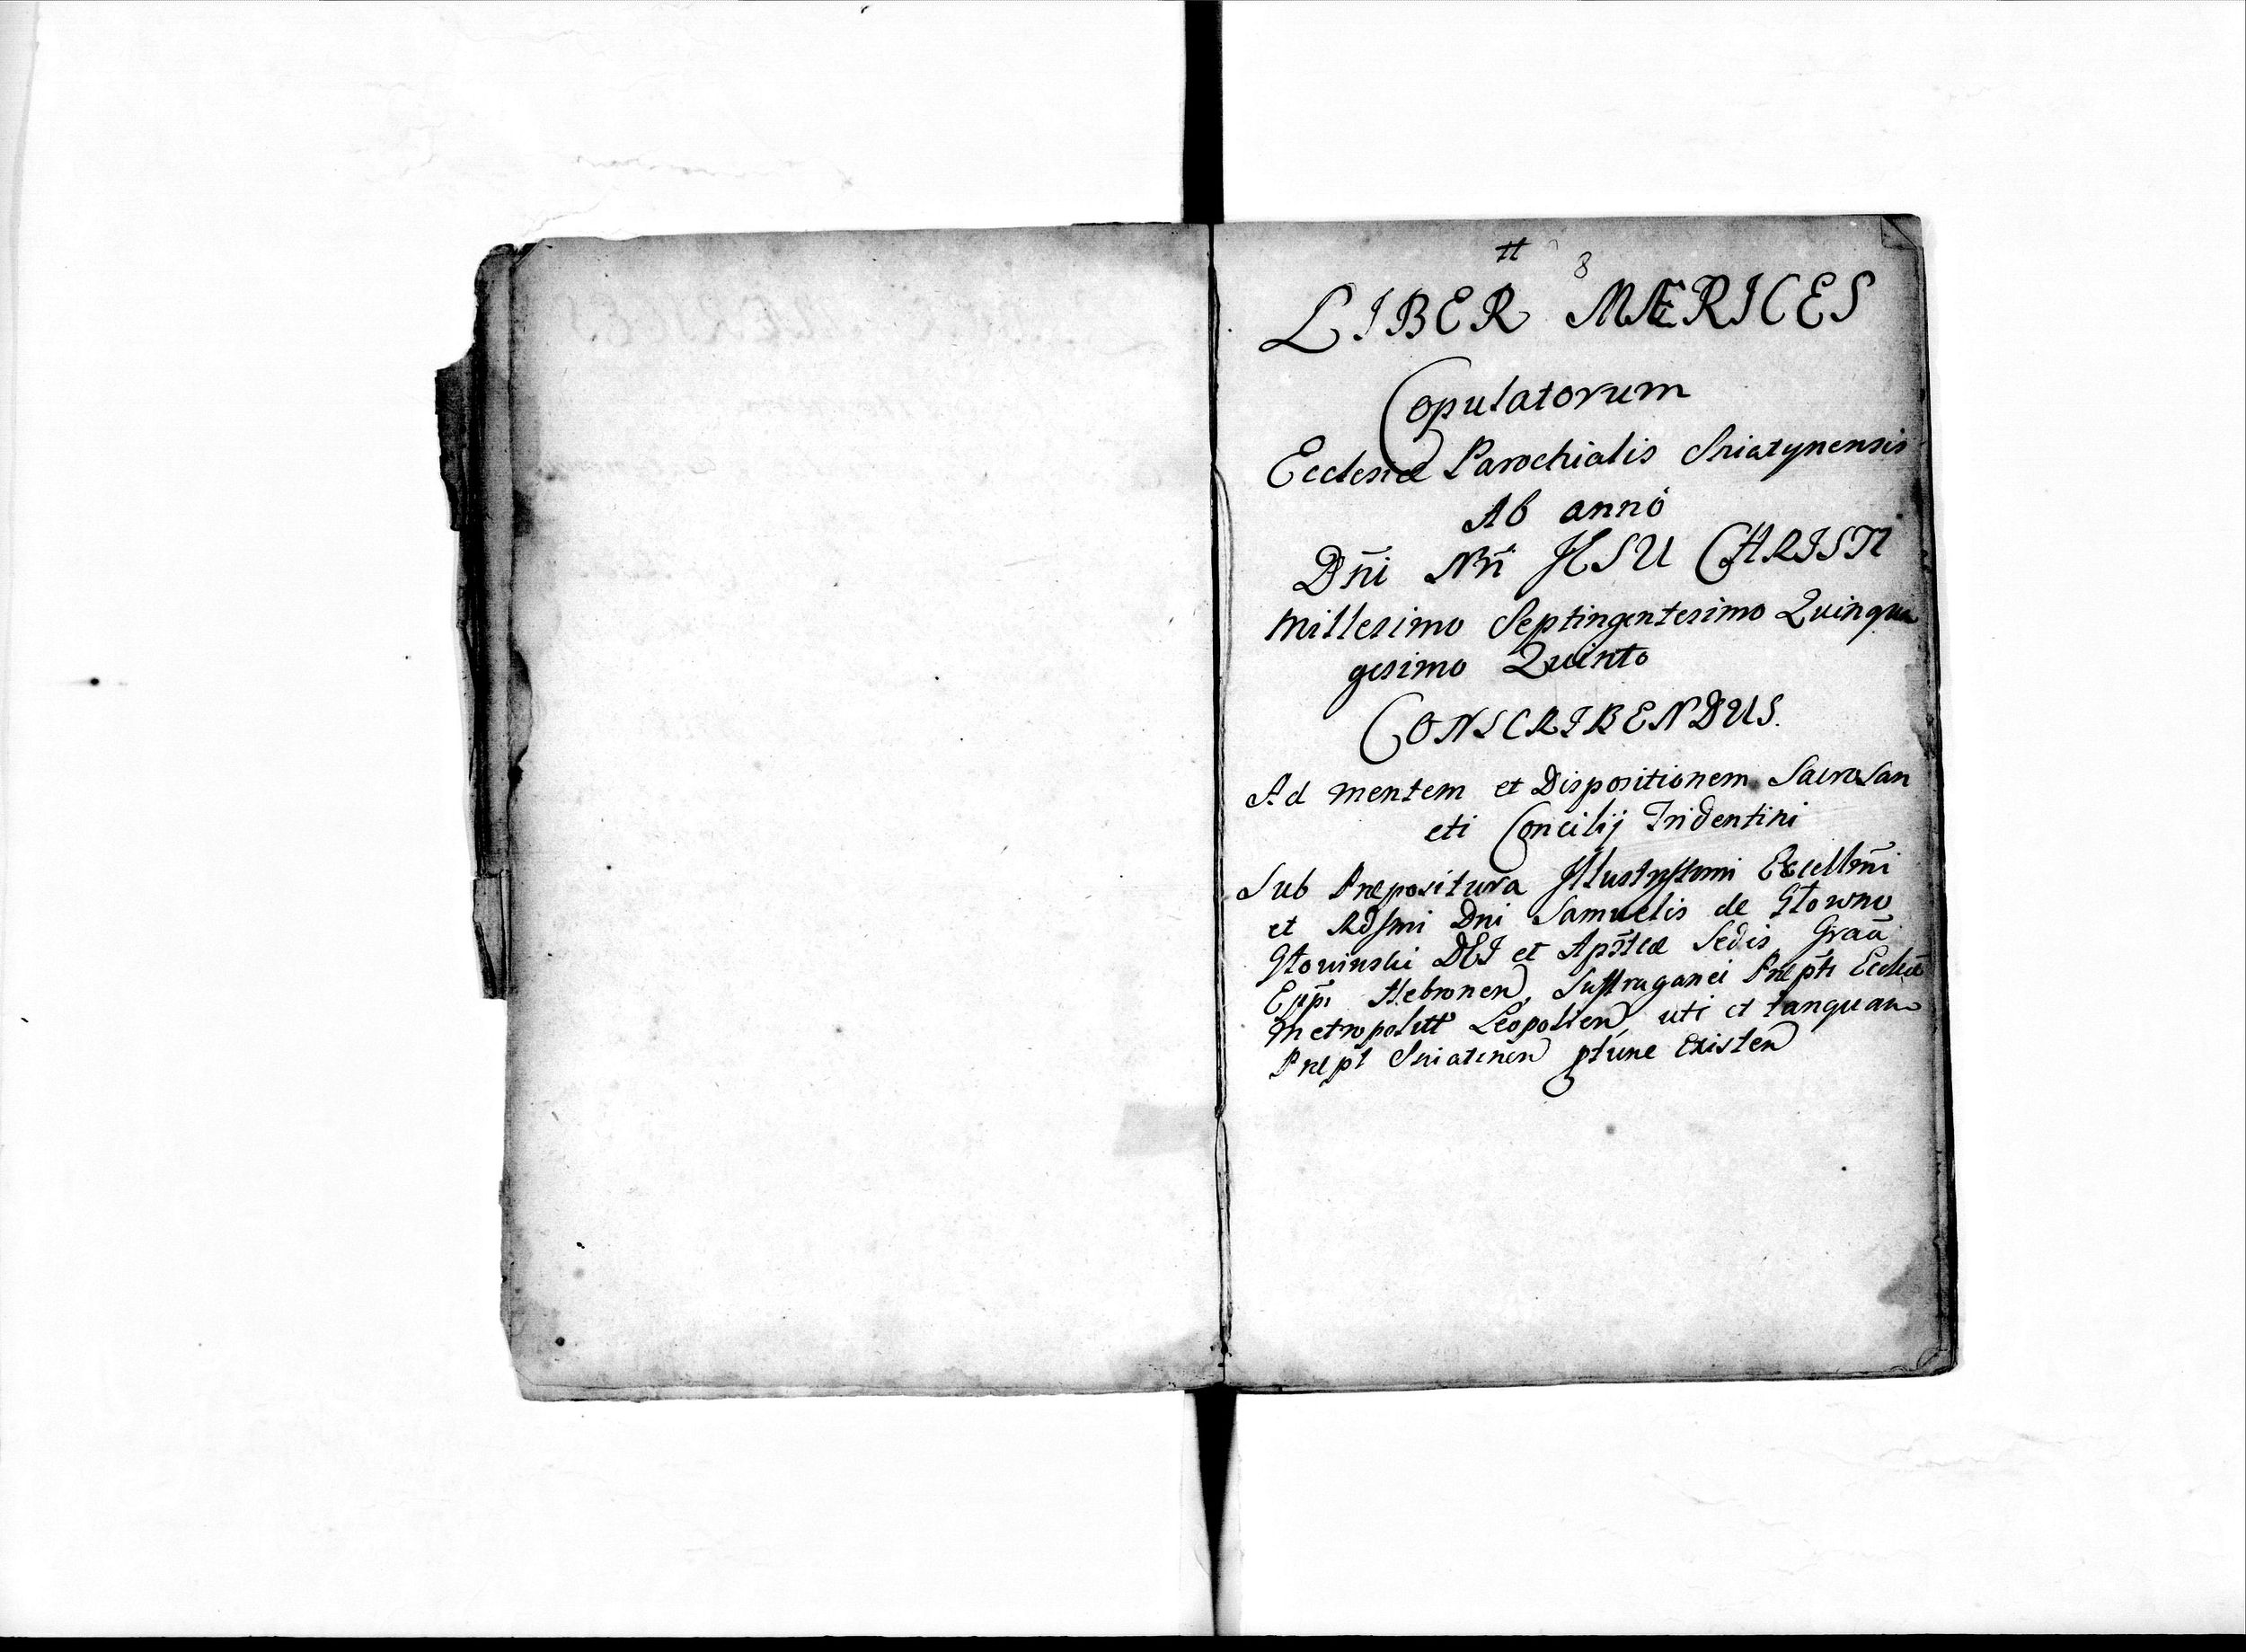 tt 8
LIBER MÆRICES
Copulatorum
Ecclesiæ Parochialis Sniatynensis
Ab anno
Dn̄i Nr̄i JESU CHRISTI
Millesimo Septingentesimo Quinqua
gesimo Quinto
CONSCRIBENDUS.
Ad mentem et Dispositionem Sacrosan
cti Concilij Tridentini
Sub Præpositura Illustrissimi Excellm̄i
et Rdssmi Dni Samuelis de Głowno
Głowinski DEI et Apsłcæ Sedis Graā
Epp̄i Hebronen, Suffraganei Præpti Ecclæ
Metropolitt Leopolien, uti et tanquam
Præpt Sniatinen ptunc Existen